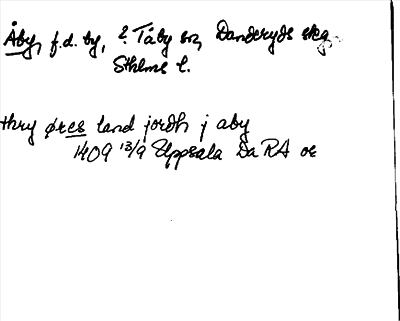 Åby, f.d. by, ? Täby sn, Danderyds skg.
Sthlms l.
thry øres land jordh j aby
1409 13/9 Uppsala Da RA or